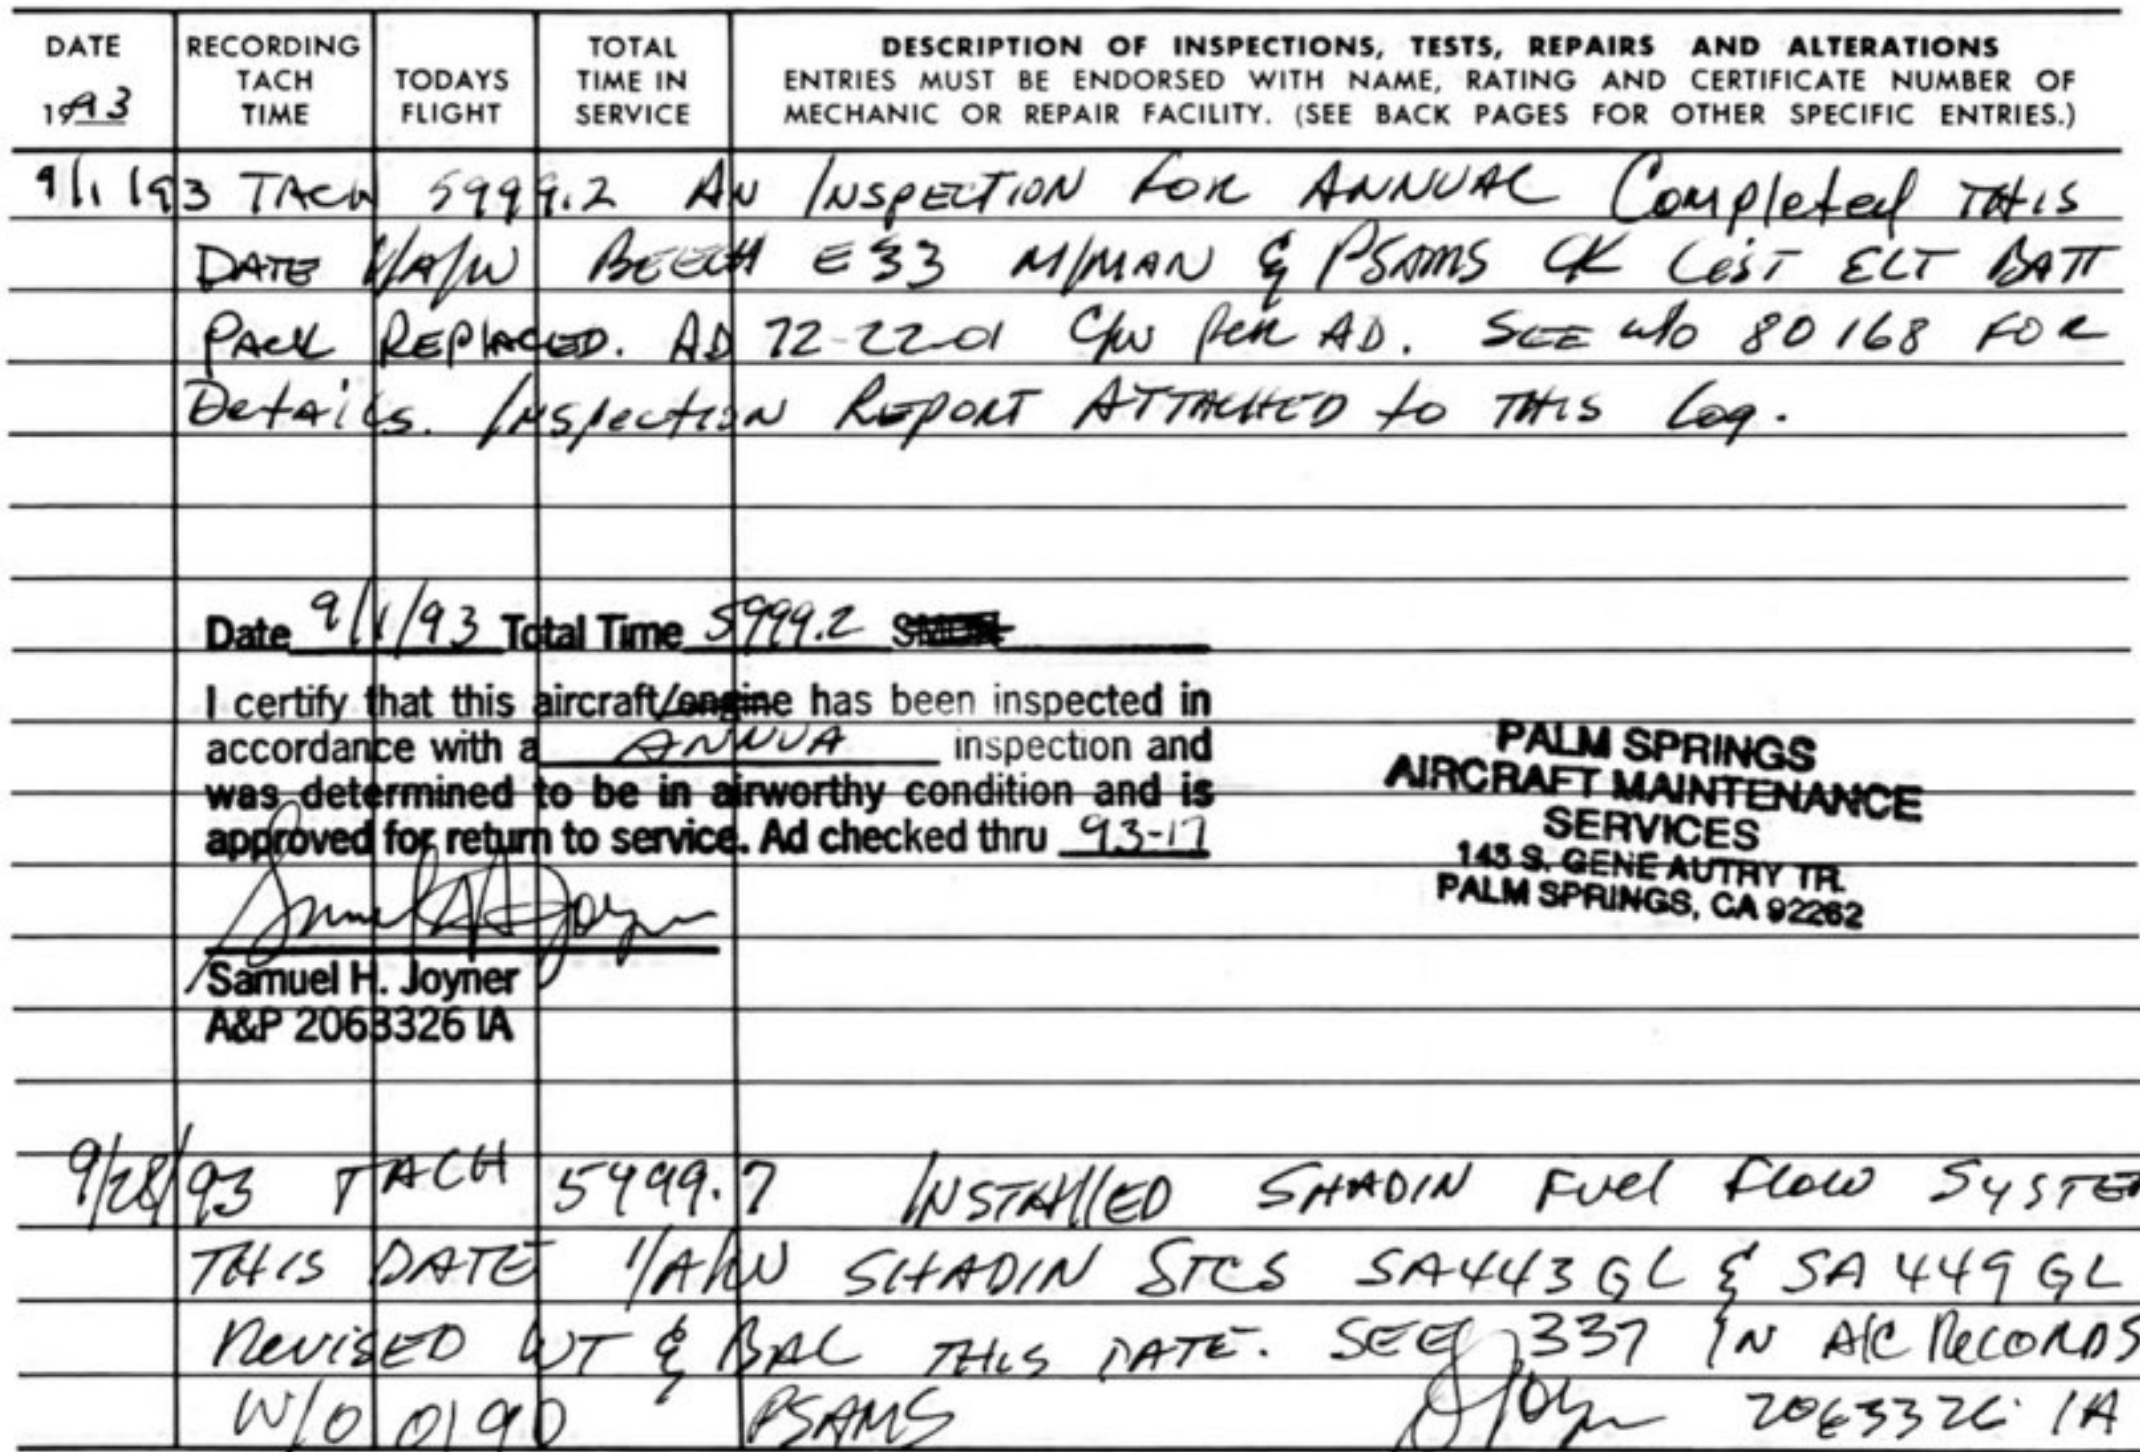 DATE
1993
RECORDING
TACH
TIME
TODAYS
FLIGHT
TOTAL
TIME IN
SERVICE
DESCRIPTION OF INSPECTIONS, TESTS, REPAIRS AND ALTERATIONS
ENTRIES MUST BE ENDORSED WITH NAME, RATING AND CERTIFICATE NUMBER OF
MECHANIC OR REPAIR FACILITY. (SEE BACK PAGES FOR OTHER SPECIFIC ENTRIES.)
9/1/93 TACH 5999.2 AN INSPECTION FOR ANNUAL Completed THIS
DATE I/A/W BEECH E33 M/MAN & PSAMS CK List ELT BATT
PACK REPLACED. AD 72-22-01 C/W per AD. SEE W/O 80168 FOR
Details. INSpection REPORT ATTACHED to THIS Log.
Date 9/1/93 Total Time 5999.2 SMOH
I certify that this aircraft/engine has been inspected in
accordance with a ANNUA inspection and
was determined to be in airworthy condition and is
approved for return to service. Ad checked thru 93-17
Samuel H. Joyner
Samuel H. Joyner
A&P 2063326 IA
PALM SPRINGS
AIRCRAFT MAINTENANCE
SERVICES
145 S. GENE AUTRY TR.
PALM SPRINGS, CA 92262
9/28/93 TACH 5999.7 INSTALLED SHADIN FUEL FLOW SYSTEM
THIS DATE I/A/W SHADIN STCS SA443GL & SA449GL
REVISED WT & BAL THIS DATE. SEE 337 IN A/C RECORDS
W/O 0190 PSAMS S Joyner 2063326 IA